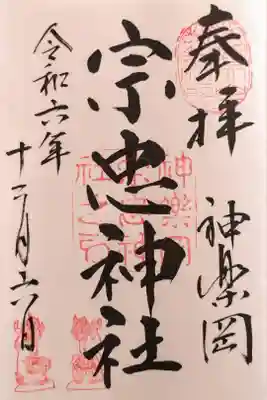 奉拝
神楽岡
宗忠神社
令和六年
十二月六日
神楽岡
宗忠神
社之印